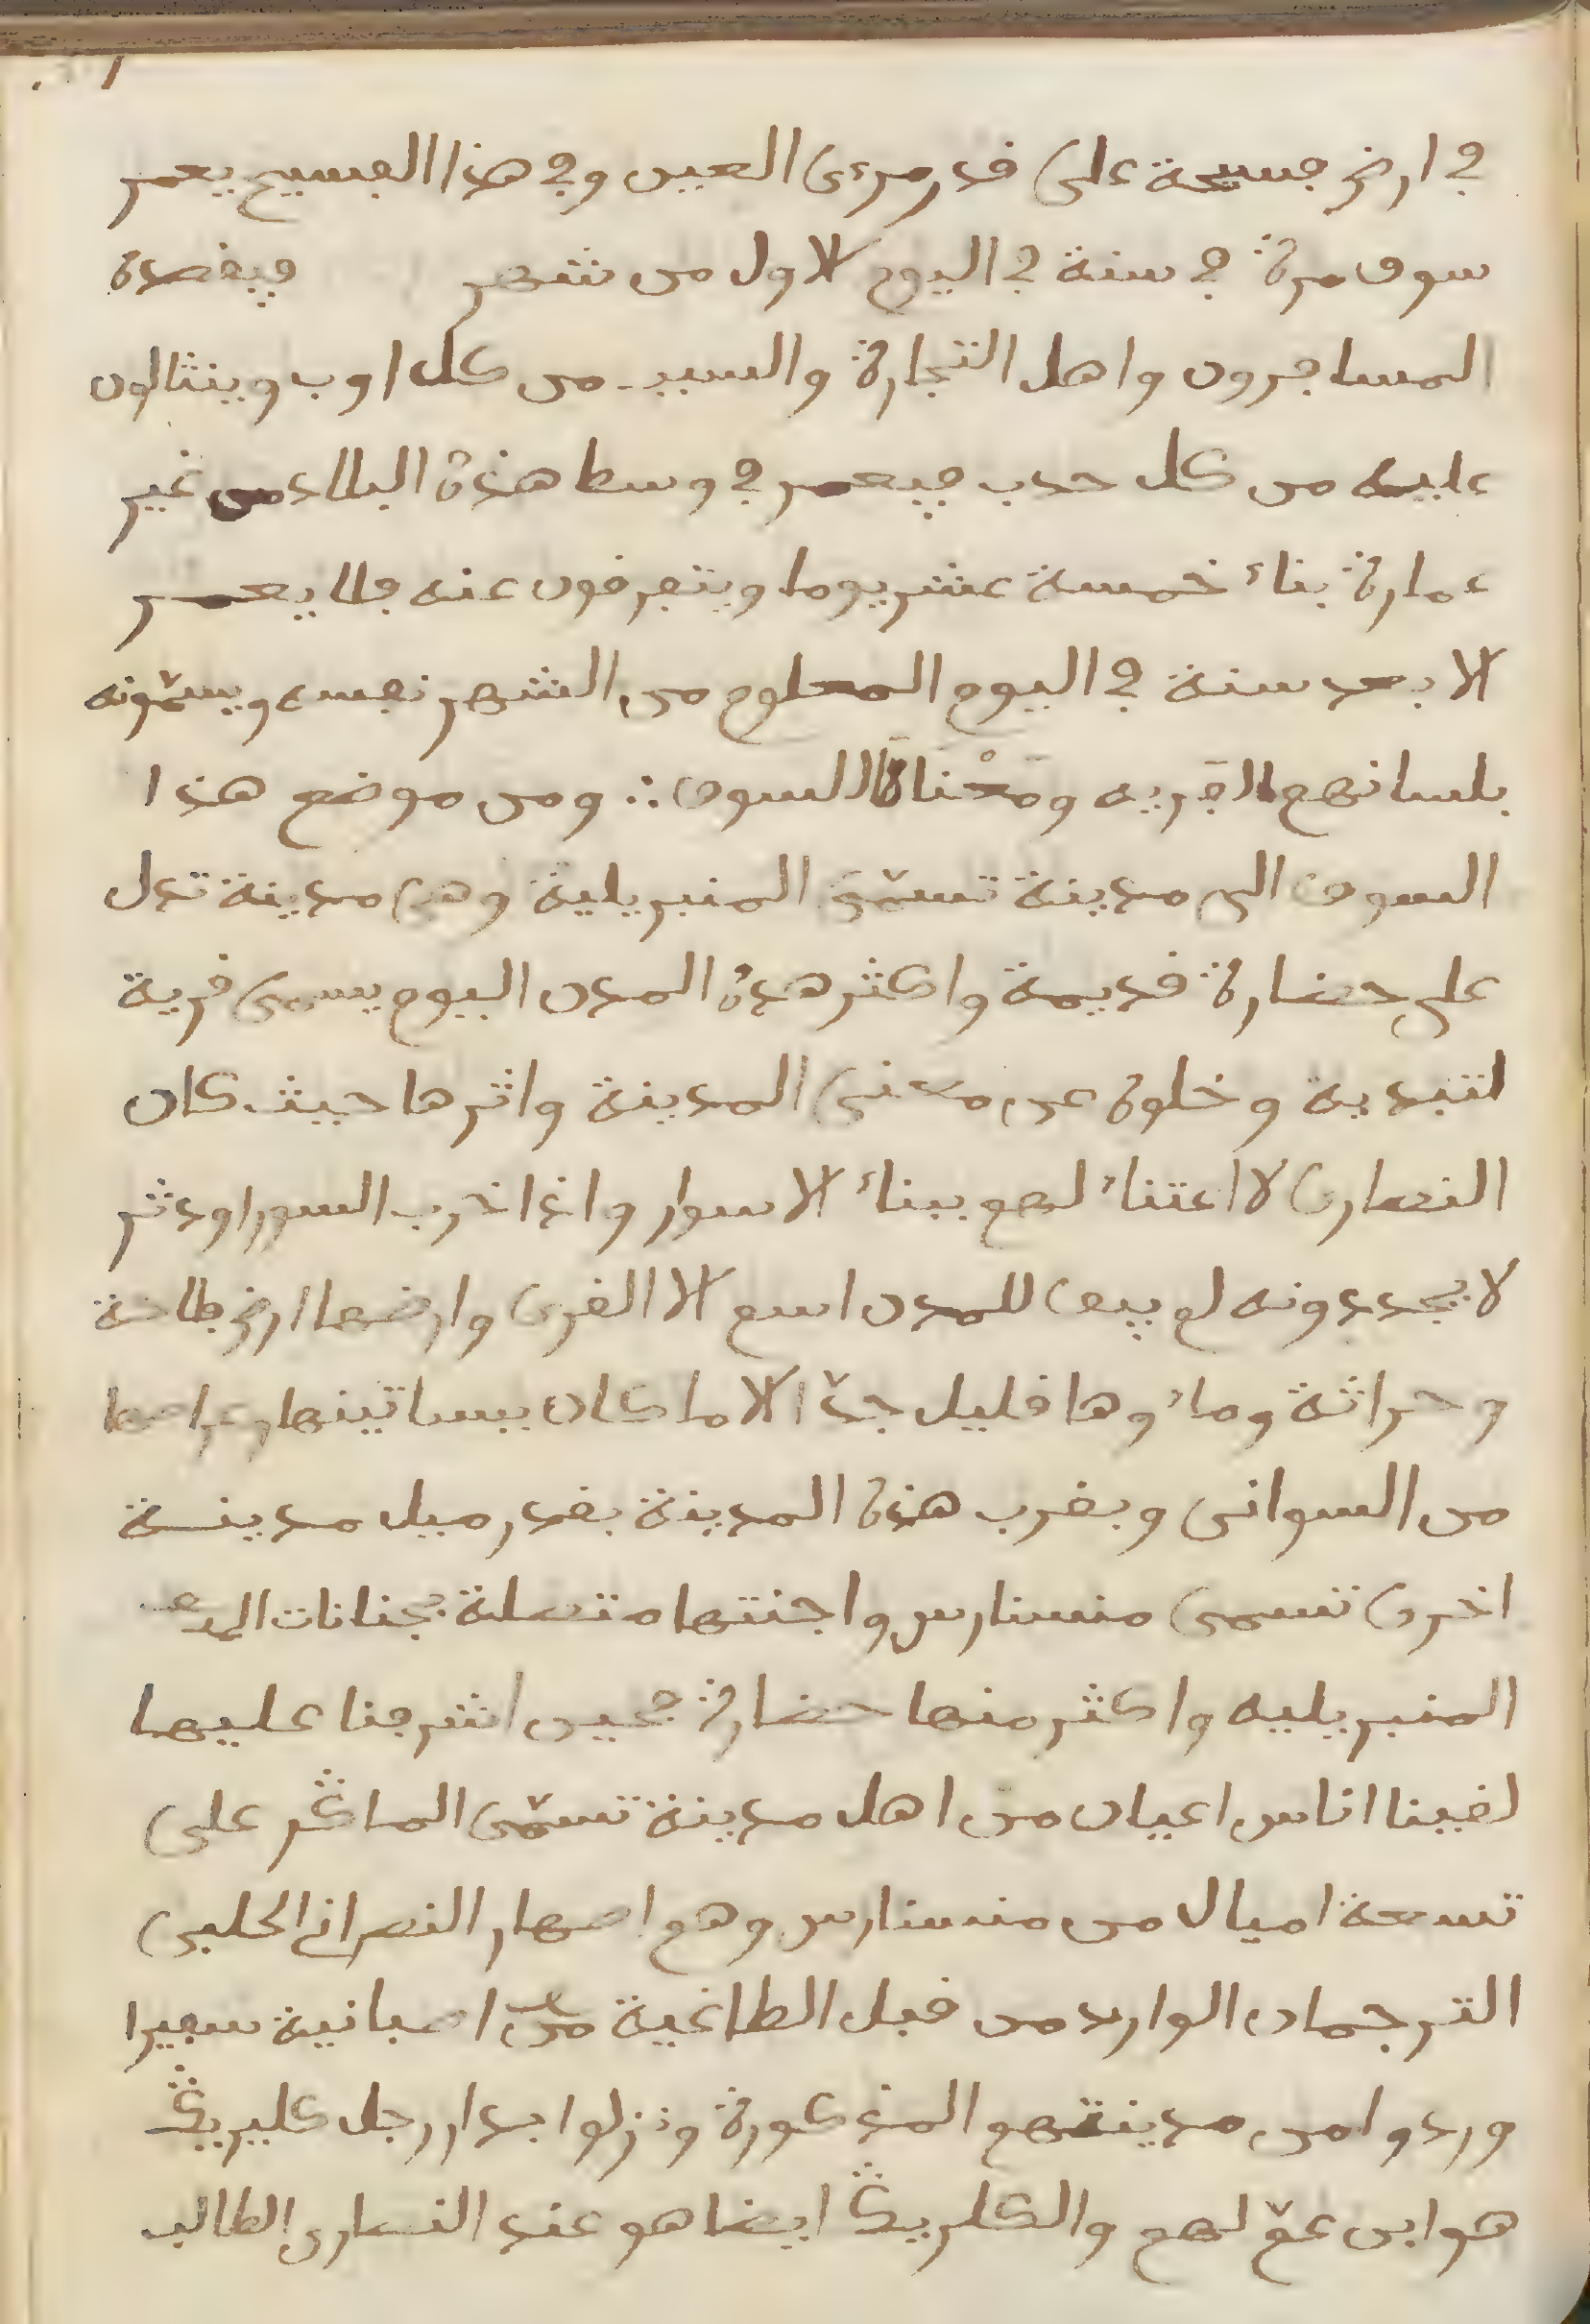 في ارض فسيحة على قدر مرءى العين وفي هذا الفسيح يعمر
سوق مرة في سنة في اليوم الاول من شهر فيقصده
المسافرون واهل التجارة والسبب من كل اوب وينثالون
عليه من كل حدب فيعمر في وسط هذه البلاد من غير
عمارة بناء خمسة عشر يوما ويتفرقون عنه فلا يعمر
الا بعد سنة في اليوم المعلوم من الشهر نفسه ويسمّونه
بلسانهم الفريه ومعْناه السوق ∴ ومن موضع هذا
السوق الى مدينة تسمّى المنبريلية وهي مدينة تدل
على حضارة قديمة واكثر هذه المدن اليوم يسمى قرية
لتبديه وخلوه عن معنى المدينة واثرها حيث كان
النصارى لا اعتناء لهم ببناء الاسوار واذا خرب السور اودثر
لا يجددونه لم يبق للمدن اسم الا القرى وارضها ارض فلاحة
وحراثة وماءوها قليل جدّا الا ما كان ببساتينها وعراصها
من السواني وبقرب هذه المدينة بقدر ميل مدينة
اخرى تسمى منسنارس واجنتها متصلة بجنانات المدينة
المنبريليه واكثر منها حضارة فحين اشرفنا عليها
لقينا اناس اعيان من اهل مدينة تسمّى الماڭر على
تسعة اميال من منسنارس وهم اصهار النصراني الحلبي
الترجمان الوارد من قبل الطاغية من اصبانية سفيرا
وردوا من مدينتهم المذكورة ونزلوا بدار رجل كليريڭ
هو ابن عمّ لهم والكلريڭ ايضا هو عند النصارى الطالب